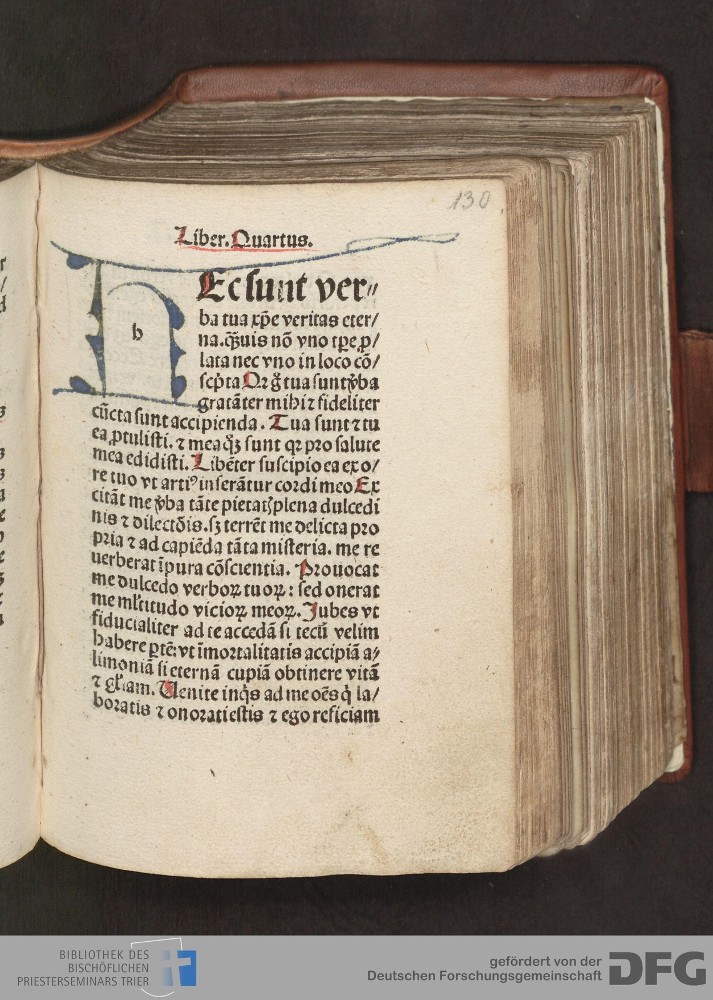 130
Liber. Quartus.
h
Ec sunt ver⸗
ba tua xp̄e veritas eter/
na. q̄₃uis nō vno tp̄e ꝓ/
lata nec vno in loco cō/
scp̄ta Qr g̊ tua sunt v̓ba
gratāter mihi ⁊ fideliter
cūcta sunt accipienda. Tua sunt ⁊ tu
ea ꝓtulisti. ⁊ mea q̊₃ sunt qꝛ pro salute
mea edidisti. Libēter suscipio ea ex o/
re tuo vt artiꝰ inserātur cordi meo Ex
citāt me v̓ba tāte pietatꝭ plena dulcedi
nis ⁊ dilectōis. sꝫ terrēt me delicta pro
pria ⁊ ad capiēda tāta misteria. me re
uerberat īpura cōscientia. Prouocat
me dulcedo verboꝝ tuoꝝ: sed onerat
me ml̓titudo vicioꝝ meoꝝ. Jubes vt
fiducialiter ad te accedā si tecū velim
habere ꝑtē: vt īmortalitatis accipiā a/
limoniā si eternā cupiā obtinere vitā
⁊ gl̓iam. Uenite inq̄s ad me oēs q̄ la/
boratis ⁊ onorati estis ⁊ ego reficiam
BIBLIOTHEK DES
BISCHÖFLICHEN
PRIESTERSEMINARS TRIER
gefördert von der
Deutschen Forschungsgemeinschaft
DFG